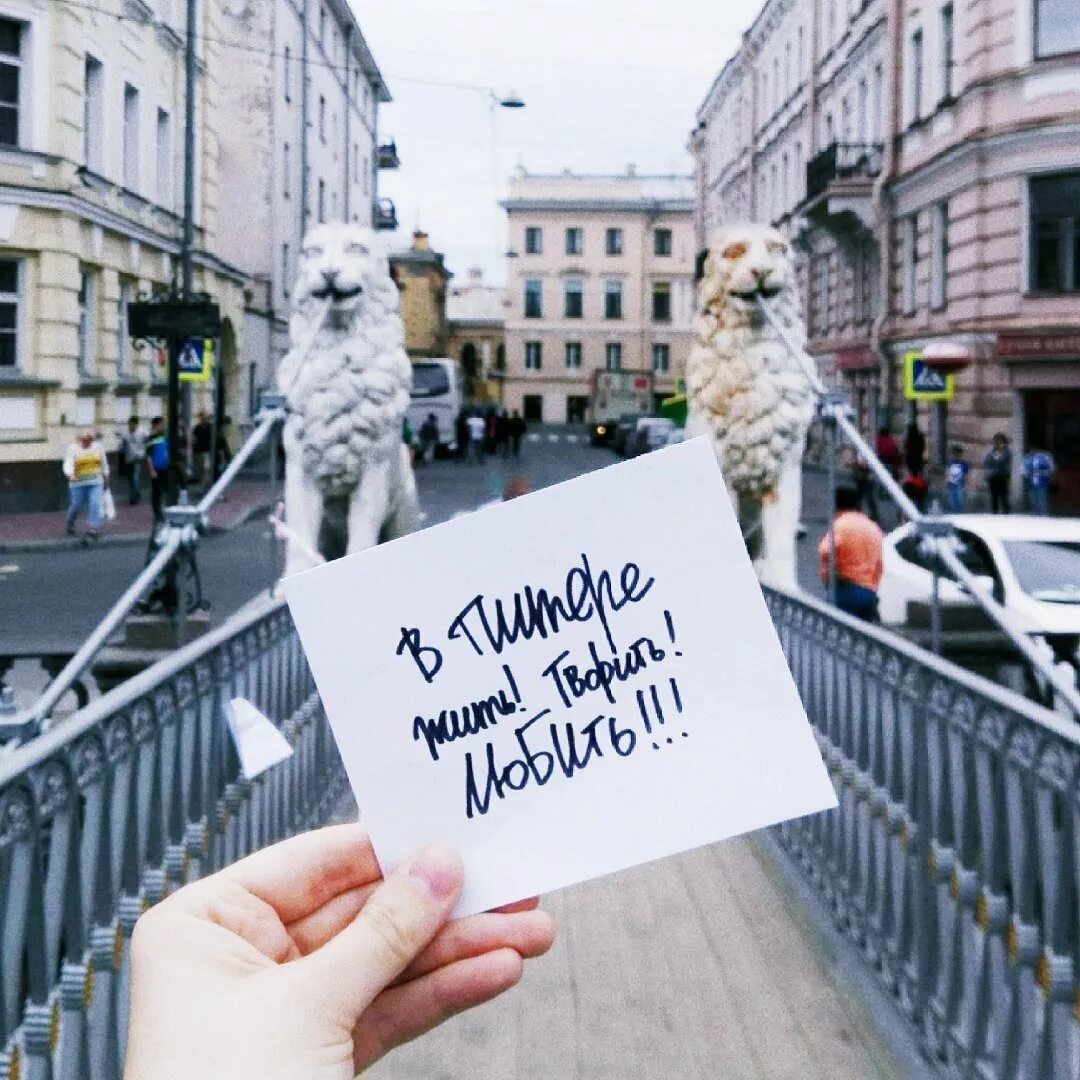 в Питере
жить! Творить!
Любить!!!